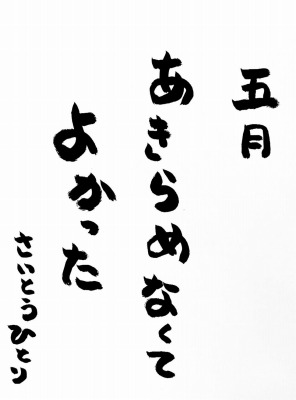 五月
あきらめなくて
よかった
さいとうひとり